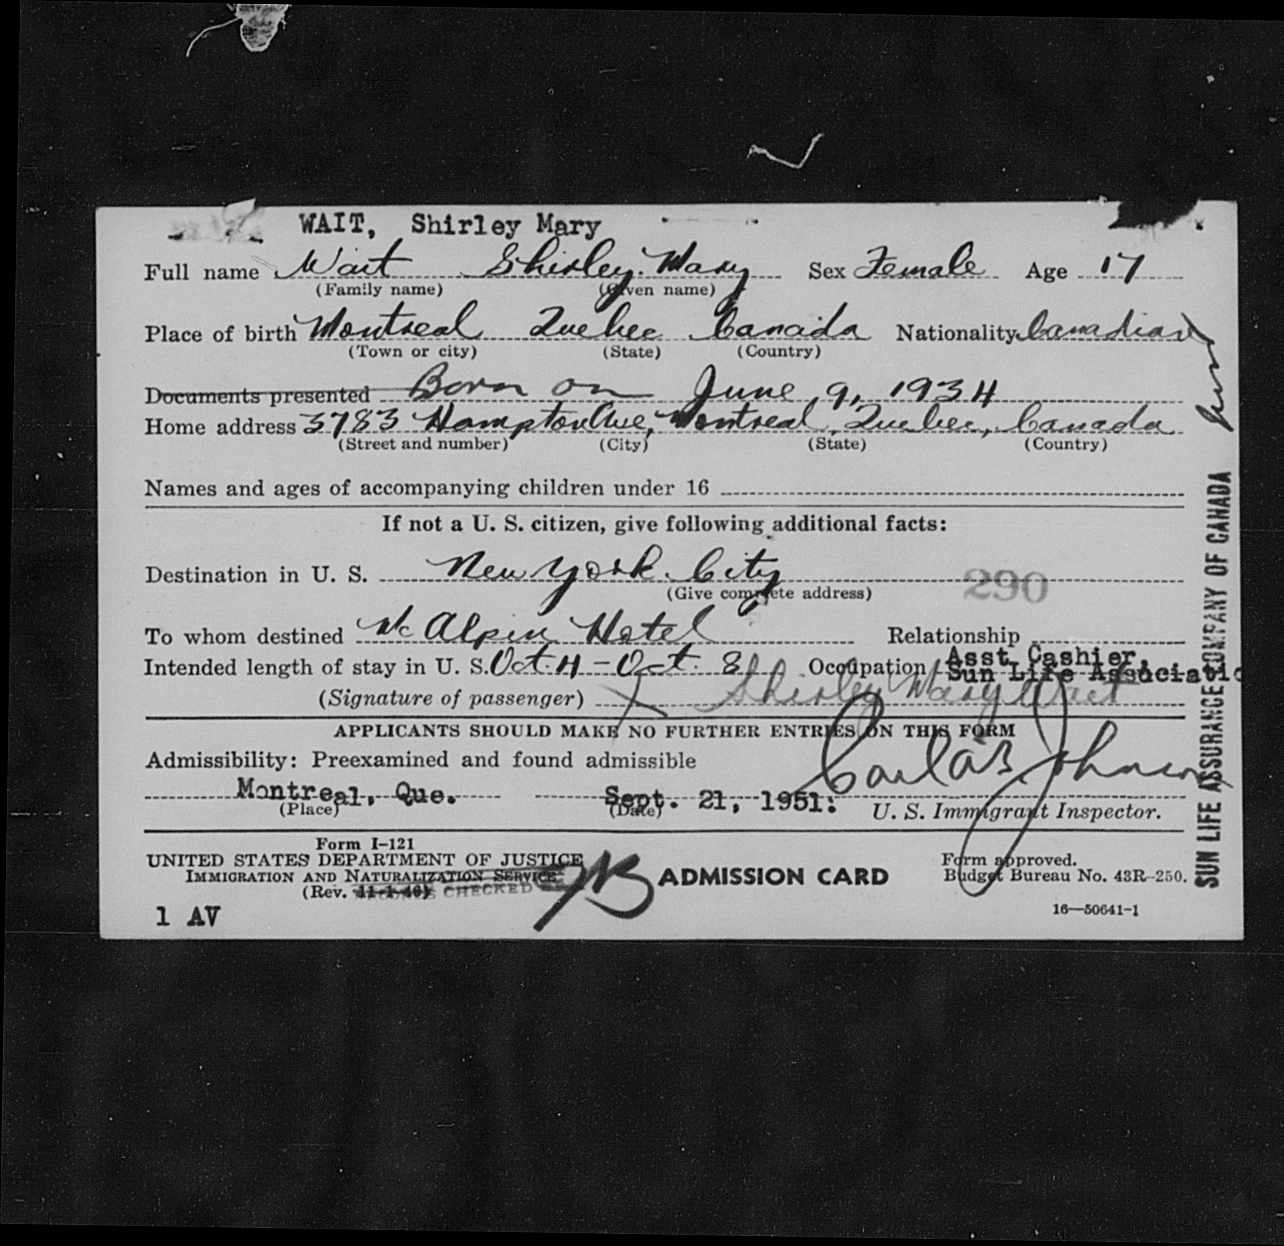 WAIT, Shirley Mary
Full name Wait Shirley Mary Sex Female Age 17
(Family name) (Given name)
Place of birth Montreal Quebec Canada Nationality Canadian
(Town or city) (State) (Country)
Documents presented Born on June 9, 1934
Home address 3783 Hampton Ave, Montreal, Quebec, Canada
(Street and number) (City) (State) (Country)
Names and ages of accompanying children under 16
If not a U. S. citizen, give following additional facts:
Destination in U. S. New York City
(Give complete address) 290
To whom destined McAlpin Hotel Relationship
Asst. Cashier,
Intended length of stay in U. S. Oct. 4 - Oct. 8 Occupation Sun Life Associatio
(Signature of passenger) X Shirley Mary Wait
APPLICANTS SHOULD MAKE NO FURTHER ENTRIES ON THIS FORM
Admissibility: Preexamined and found admissible
Montreal, Que. Sept. 21, 1951: Johnson
(Place) (Date) U. S. Immigrant Inspector.
Form I-121
UNITED STATES DEPARTMENT OF JUSTICE
IMMIGRATION AND NATURALIZATION SERVICE
(Rev. 11-1-40) CHECKED
ADMISSION CARD
Form approved.
Budget Bureau No. 43R-250.
1 AV
16—50641-1
SUN LIFE ASSURANCE COMPANY OF CANADA